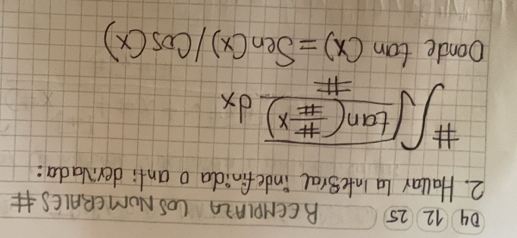 04 12 25 REEMPLAZA LOS NUMERALES #
2. Hallar la integral indefinida o anti derivada:
# ∫ √(tan(#/# x)) / # dx
Donde tan (x) = Sen(x)/Cos(x)